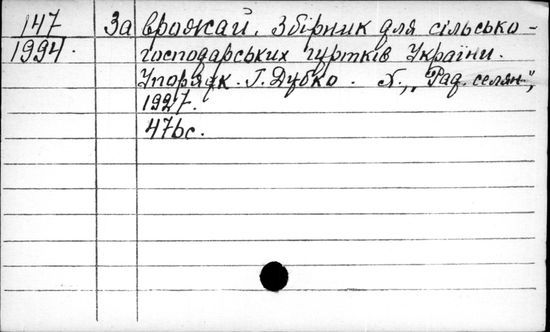 147 За врожай. Збірник для сільсько-
1994. господарських гуртків України.
Упорядк. Г. Дубко. Х., „Рад. селян.",
1927.
476 с.